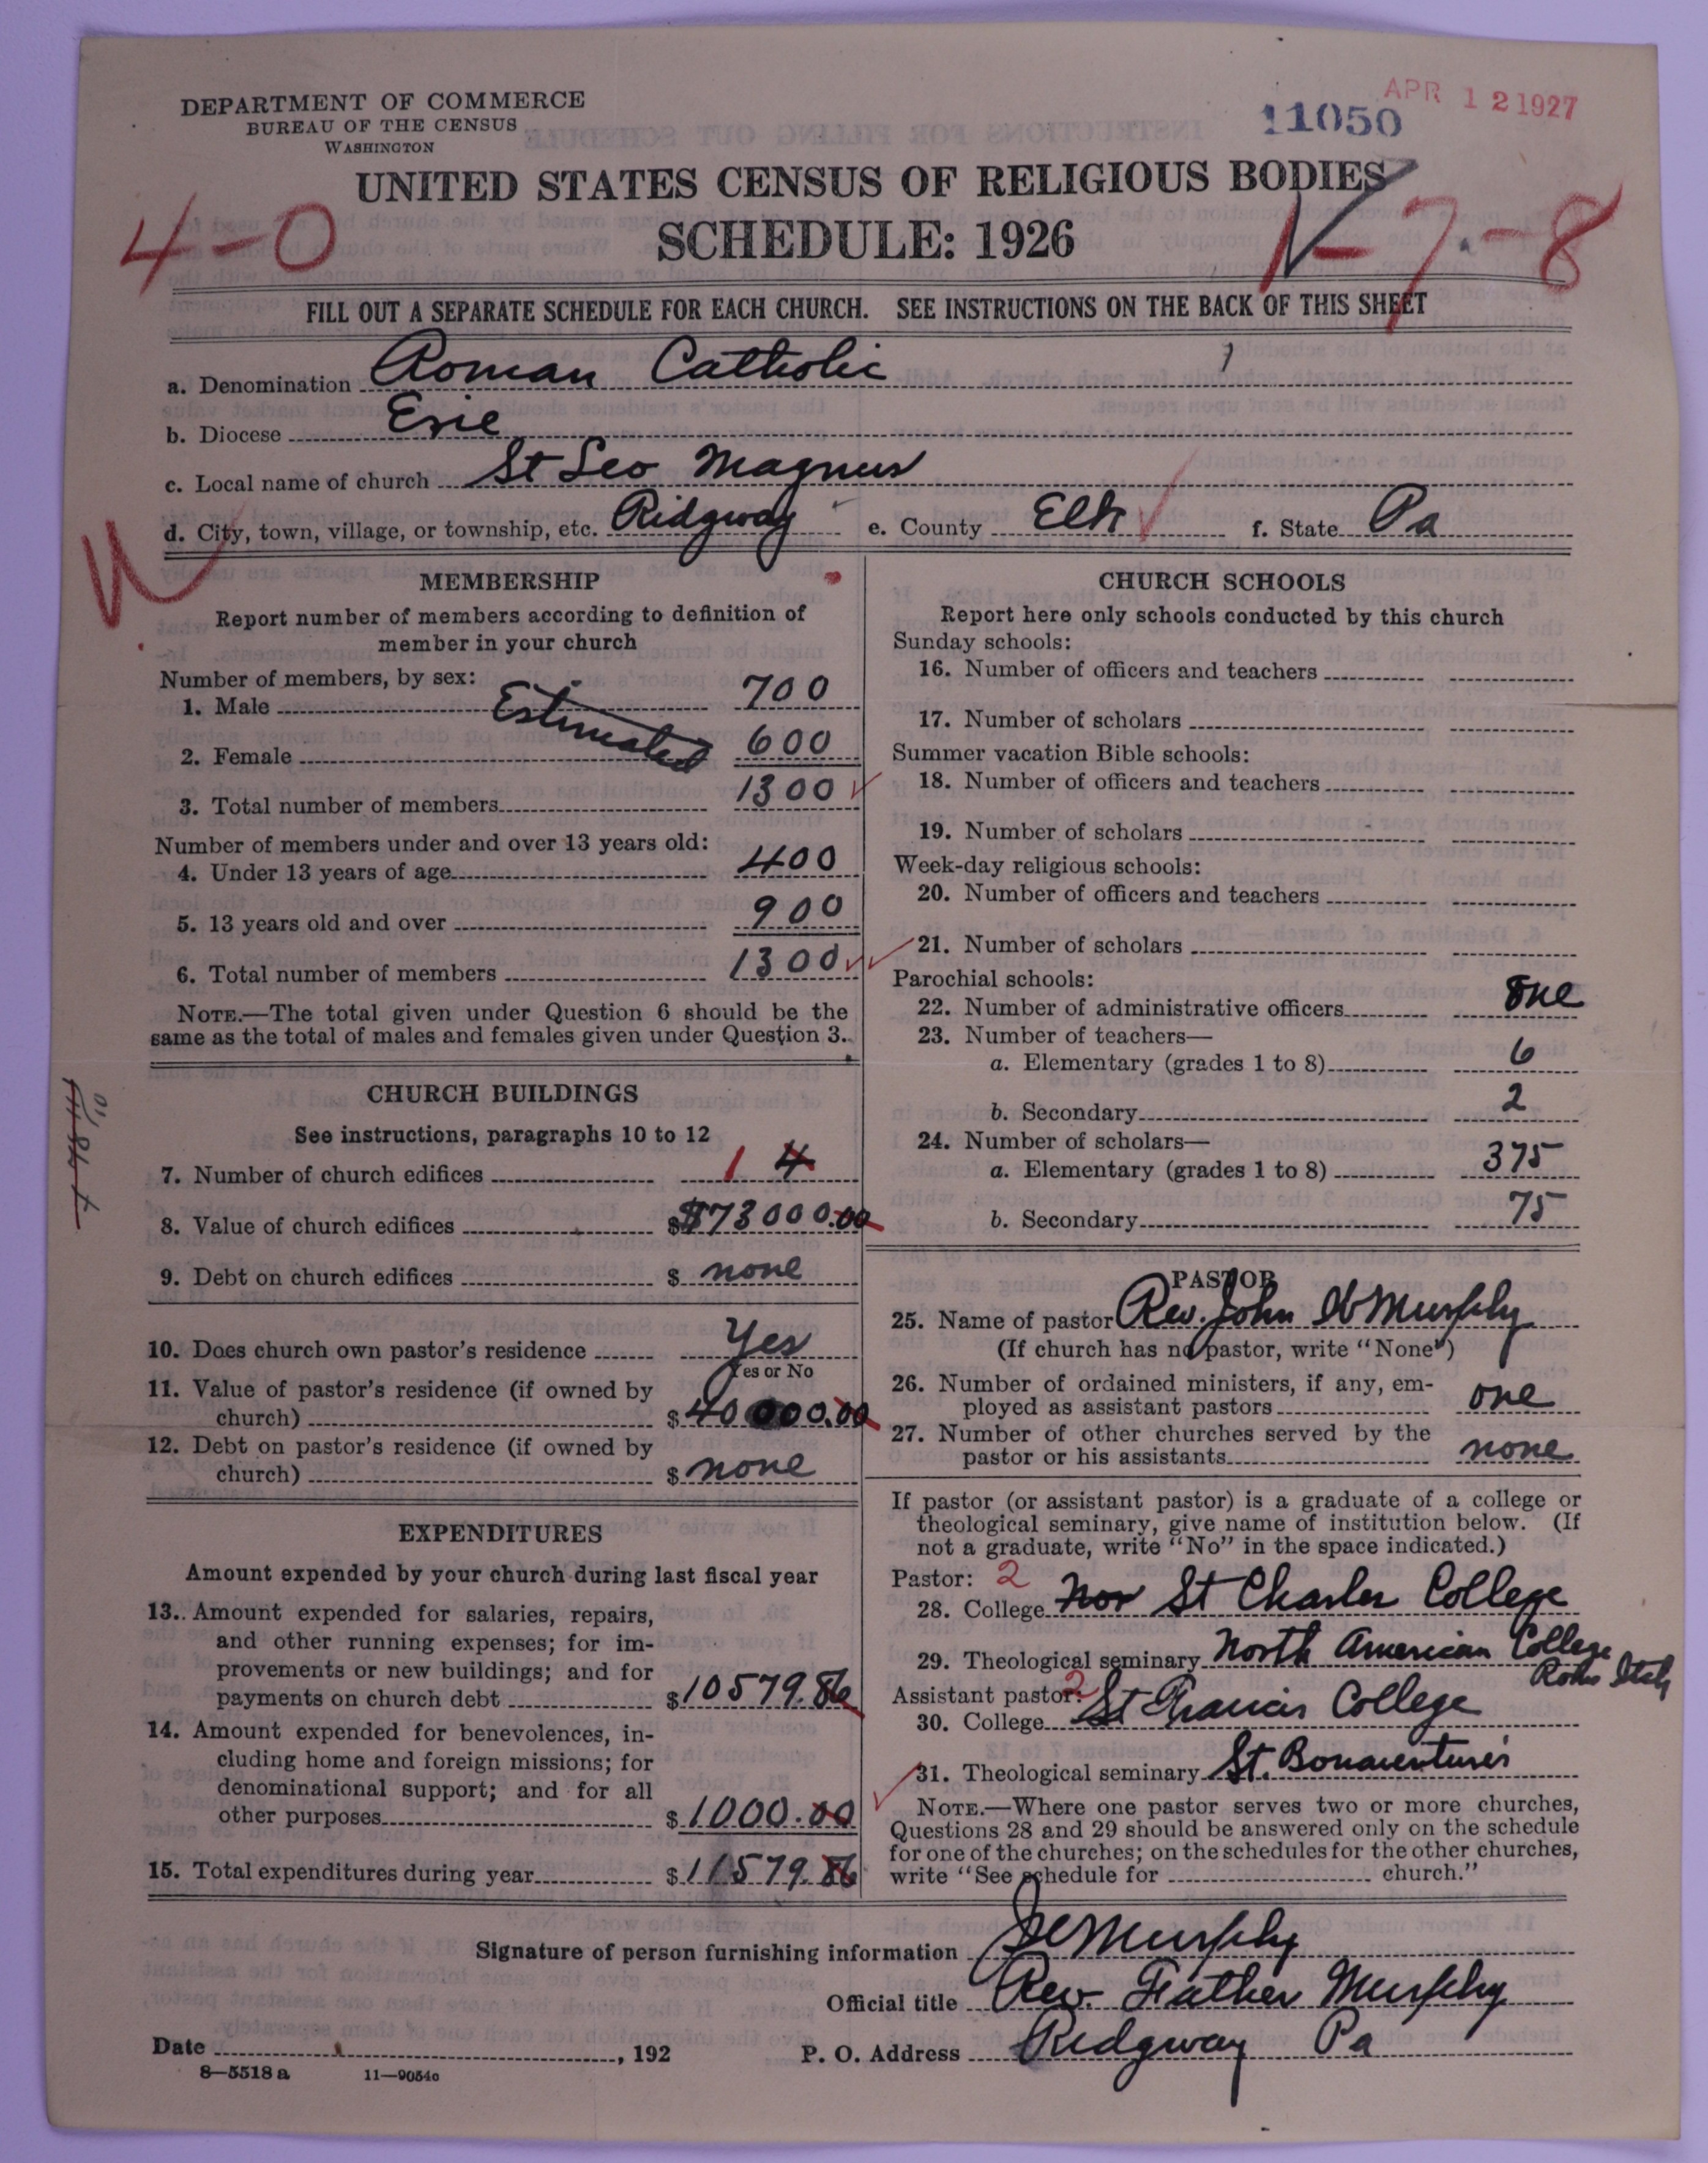 DEPARTMENT OF COMMERCE
BUREAU OF THE CENSUS
WASHINGTON
11050
APR 12 1927
UNITED STATES CENSUS OF RELIGIOUS BODIES
SCHEDULE: 1926
4-0
1-7-8
FILL OUT A SEPARATE SCHEDULE FOR EACH CHURCH. SEE INSTRUCTIONS ON THE BACK OF THIS SHEET
a. Denomination Roman Catholic
b. Diocese Erie
c. Local name of church St Leo Magnus
d. City, town, village, or township, etc. Ridgway e. County Elk f. State Pa
MEMBERSHIP
Report number of members according to definition of
member in your church
Number of members, by sex:
1. Male Estimated 700
2. Female 600
3. Total number of members 1300
Number of members under and over 13 years old:
4. Under 13 years of age 400
5. 13 years old and over 900
6. Total number of members 1300
NOTE.—The total given under Question 6 should be the
same as the total of males and females given under Question 3.
CHURCH BUILDINGS
See instructions, paragraphs 10 to 12
7. Number of church edifices 1 4
8. Value of church edifices $ $73000.00
9. Debt on church edifices $ none
10. Does church own pastor's residence Yes
Yes or No
11. Value of pastor's residence (if owned by
church) $ 40000.00
12. Debt on pastor's residence (if owned by
church) $ none
EXPENDITURES
Amount expended by your church during last fiscal year
13. Amount expended for salaries, repairs,
and other running expenses; for im-
provements or new buildings; and for
payments on church debt $ 10579.86
14. Amount expended for benevolences, in-
cluding home and foreign missions; for
denominational support; and for all
other purposes $ 1000.00
15. Total expenditures during year $ 11579.86
CHURCH SCHOOLS
Report here only schools conducted by this church
Sunday schools:
16. Number of officers and teachers
17. Number of scholars
Summer vacation Bible schools:
18. Number of officers and teachers
19. Number of scholars
Week-day religious schools:
20. Number of officers and teachers
21. Number of scholars
Parochial schools:
22. Number of administrative officers one
23. Number of teachers—
a. Elementary (grades 1 to 8) 6
b. Secondary 2
24. Number of scholars—
a. Elementary (grades 1 to 8) 375
b. Secondary 75
PASTOR
25. Name of pastor Rev. John Murphy
(If church has no pastor, write "None")
26. Number of ordained ministers, if any, em-
ployed as assistant pastors one
27. Number of other churches served by the
pastor or his assistants none
If pastor (or assistant pastor) is a graduate of a college or
theological seminary, give name of institution below. (If
not a graduate, write "No" in the space indicated.)
Pastor: 2
28. College Nor St Charles College
29. Theological seminary North American College
Rome Italy
Assistant pastor: 2
30. College St Francis College
31. Theological seminary St. Bonaventures
NOTE.—Where one pastor serves two or more churches,
Questions 28 and 29 should be answered only on the schedule
for one of the churches; on the schedules for the other churches,
write "See schedule for church."
Signature of person furnishing information Murphy
Official title Rev. Father Murphy
Date , 192 P. O. Address Ridgway Pa
8—5518 a 11—9054c